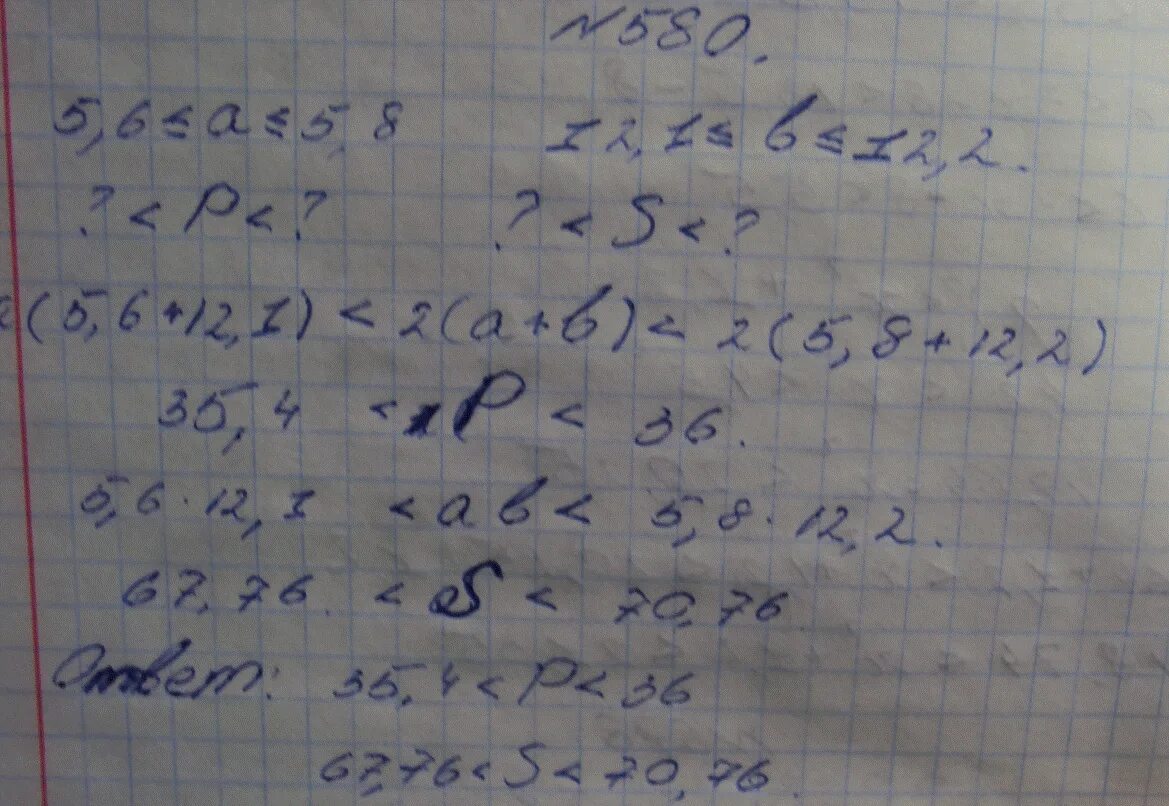 №580.
5,6 ≤ a ≤ 5,8 12,1 ≤ b ≤ 12,2.
? < P < ? ? < S < ?
(5,6+12,1) < 2(a+b) < 2(5,8+12,2)
35,4 < P < 36.
5,6·12,1 < ab < 5,8·12,2.
67,76 < S < 70,76
Ответ: 35,4 < P < 36
67,76 < S < 70,76.